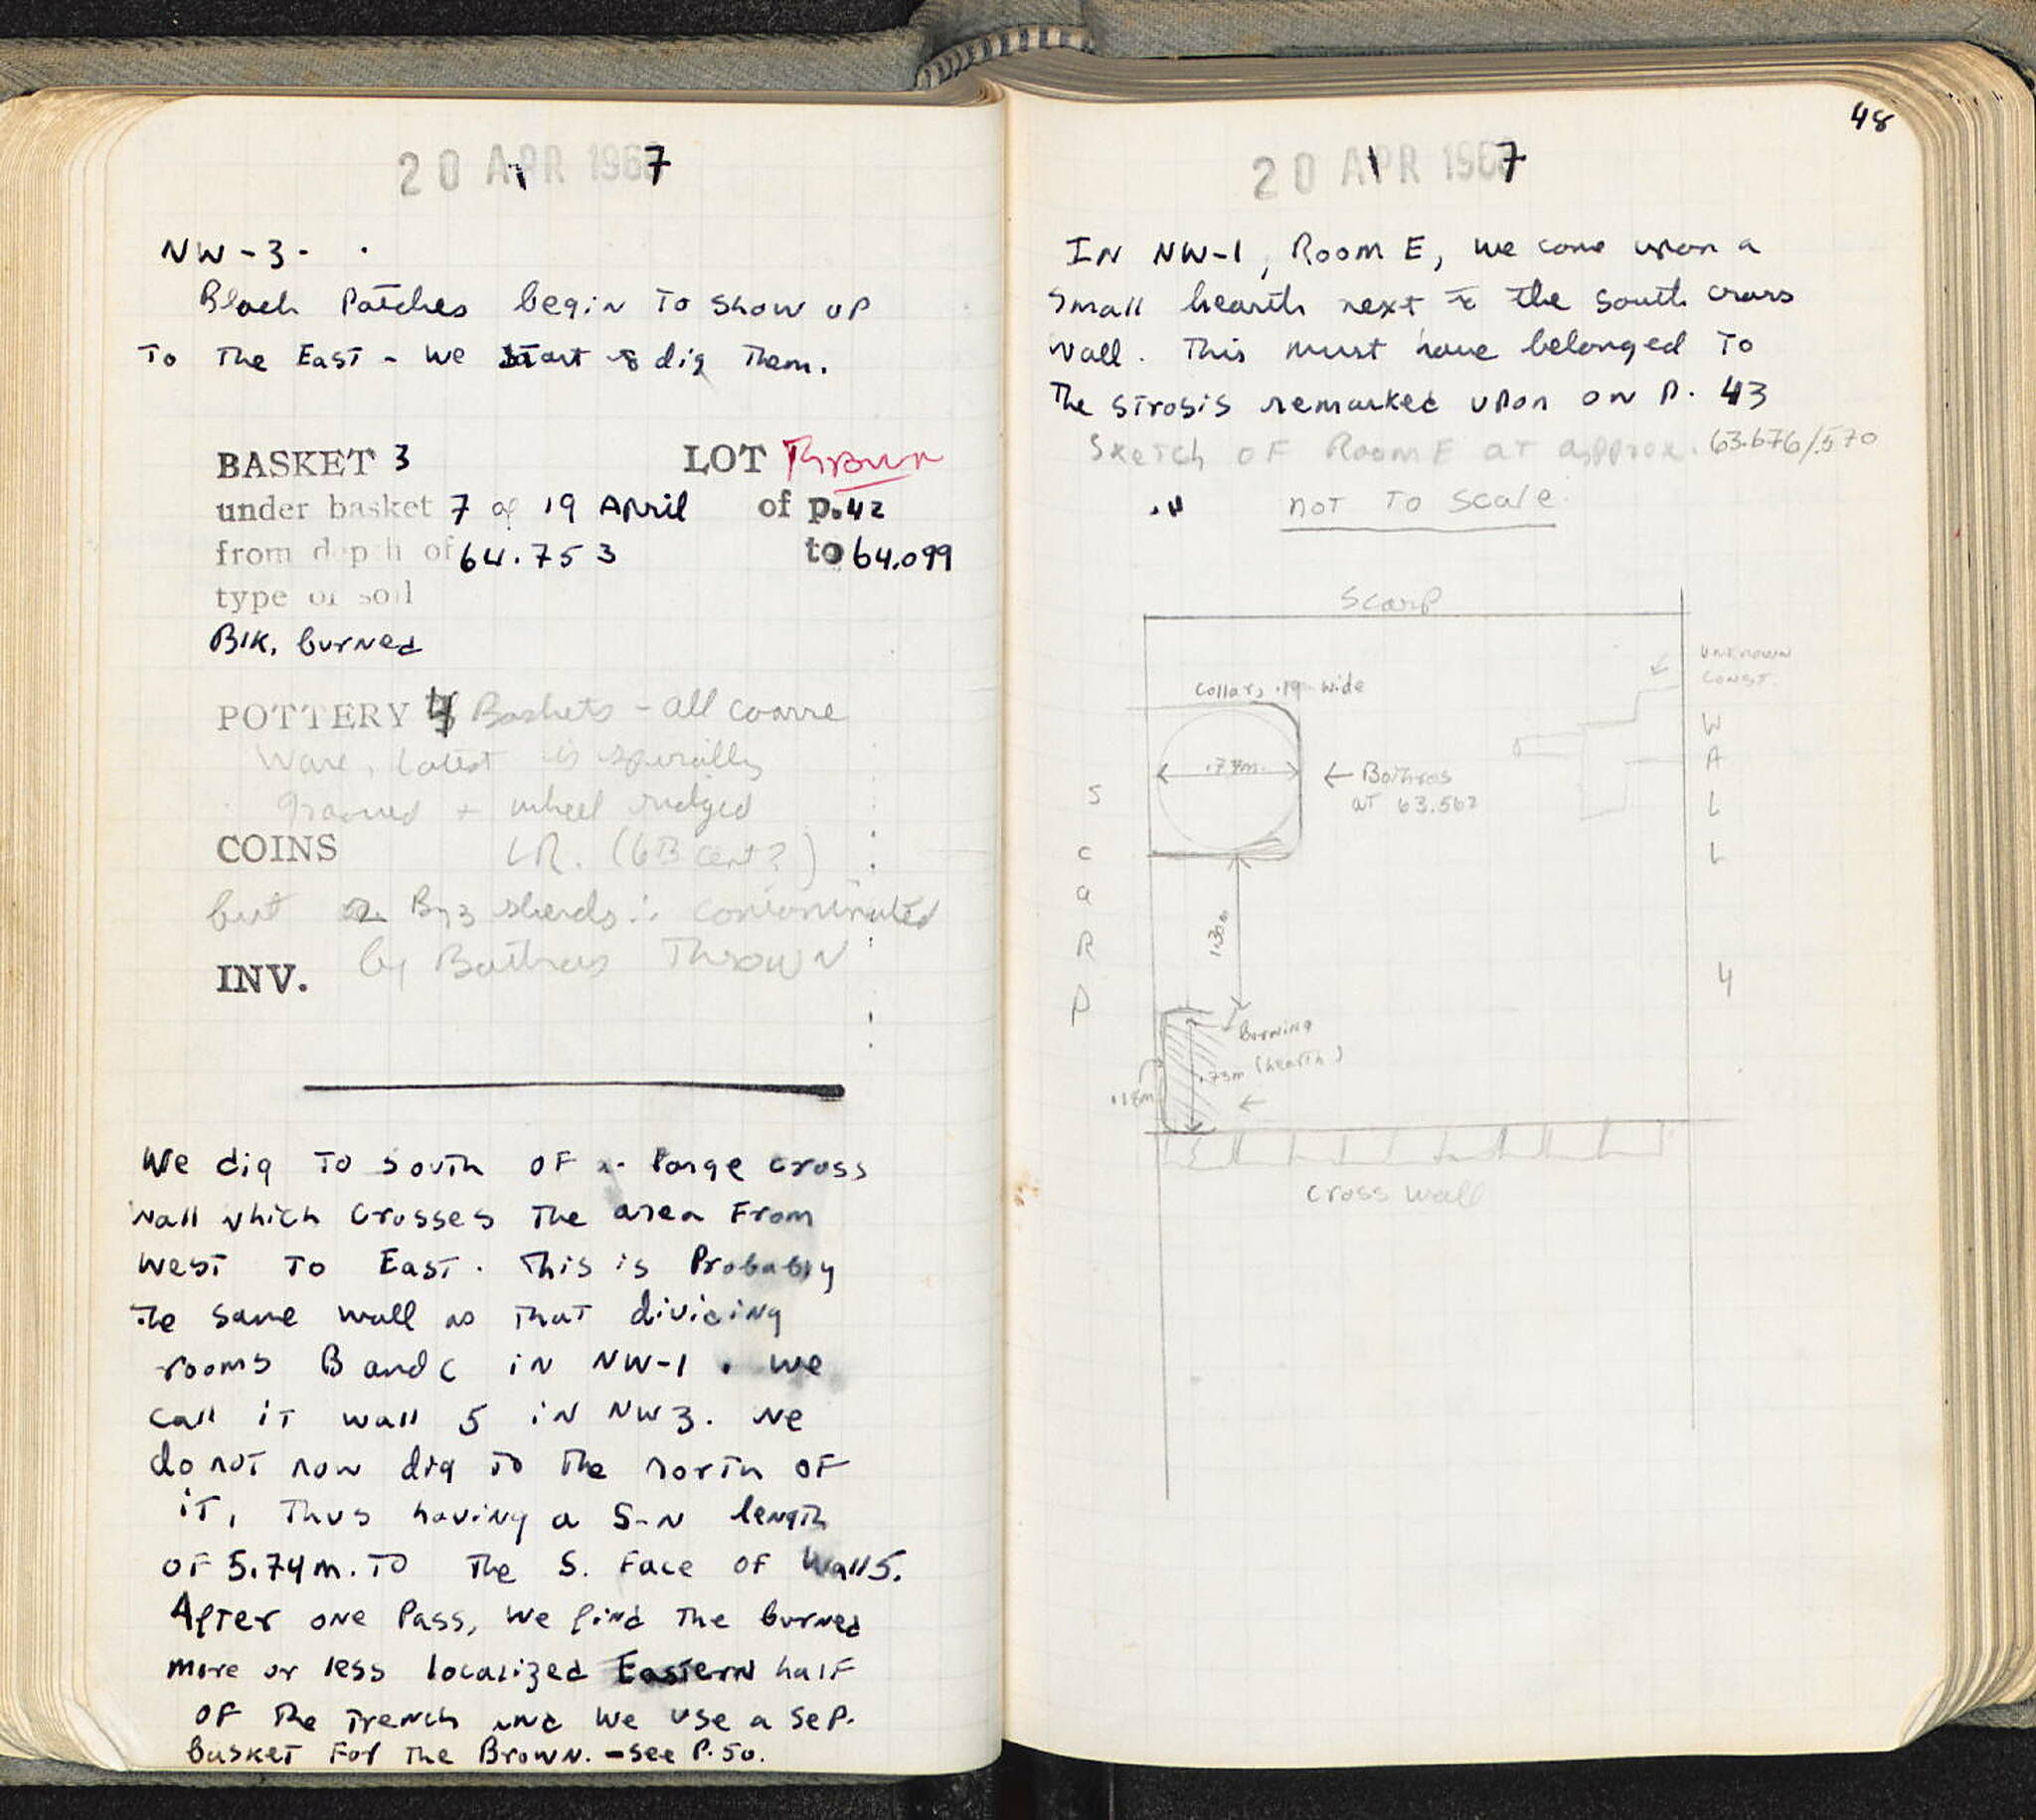 20 APR 1967
NW-3-
Black Patches begin to show up
to the East - we start to dig them.
BASKET 3 LOT Thrown
under basket 7 of 19 April of p. 42
from depth of 64.753 to 64.099
type of soil
Blk, burned
POTTERY 4 Baskets - all coarse
Ware, latest is spirally
grooved + wheel ridged
COINS LR. (6th cent?)
but 2 Byz sherds ∴ contaminated
by Bothros Thrown
INV.
We dig to south of a large cross
wall which crosses the area from
West to East. This is Probably
the same wall as that dividing
rooms B and C in NW-1. We
call it wall 5 in NW3. We
do not now dig to the north of
it, thus having a S-N length
of 5.74m. to the S. Face of Wall 5.
After one Pass, we find the burned
more or less localized Eastern half
of the trench and we use a sep.
basket for the Brown. - see P. 50.
48
20 APR 1967
In NW-1, Room E, we come upon a
small hearth next to the south cross
wall. This must have belonged to
the strosis remarked upon on P. 43
Sketch of Room E at approx. 63.676/.570
not to scale
Scarp
unknown
const.
collar, .19 wide
WALL 4
← Bothros
at 63.562
SCARP
1.30m
Burning
(hearth)
.73m
.18m
cross wall